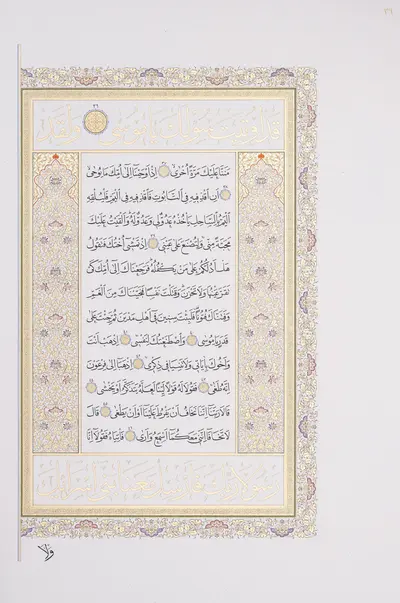 قَالَ قَدْ أُوتِيتَ سُؤْلَكَ يَا مُوسَىٰ ٣٦ وَلَقَدْ
مَنَنَّا عَلَيْكَ مَرَّةً أُخْرَىٰ ٣٧ إِذْ أَوْحَيْنَا إِلَىٰ أُمِّكَ مَا يُوحَىٰ
٣٨ أَنِ اقْذِفِيهِ فِي التَّابُوتِ فَاقْذِفِيهِ فِي الْيَمِّ فَلْيُلْقِهِ
الْيَمُّ بِالسَّاحِلِ يَأْخُذْهُ عَدُوٌّ لِي وَعَدُوٌّ لَهُ وَأَلْقَيْتُ عَلَيْكَ
مَحَبَّةً مِنِّي وَلِتُصْنَعَ عَلَىٰ عَيْنِي ٣٩ إِذْ تَمْشِي أُخْتُكَ فَتَقُولُ
هَلْ أَدُلُّكُمْ عَلَىٰ مَنْ يَكْفُلُهُ فَرَجَعْنَاكَ إِلَىٰ أُمِّكَ كَيْ
تَقَرَّ عَيْنُهَا وَلَا تَحْزَنَ وَقَتَلْتَ نَفْسًا فَنَجَّيْنَاكَ مِنَ الْغَمِّ
وَفَتَنَّاكَ فُتُونًا فَلَبِثْتَ سِنِينَ فِي أَهْلِ مَدْيَنَ ثُمَّ جِئْتَ عَلَىٰ
قَدَرٍ يَا مُوسَىٰ ٤٠ وَاصْطَنَعْتُكَ لِنَفْسِي ٤١ اذْهَبْ أَنْتَ
وَأَخُوكَ بِآيَاتِي وَلَا تَنِيَا فِي ذِكْرِي ٤٢ اذْهَبَا إِلَىٰ فِرْعَوْنَ
إِنَّهُ طَغَىٰ ٤٣ فَقُولَا لَهُ قَوْلًا لَيِّنًا لَعَلَّهُ يَتَذَكَّرُ أَوْ يَخْشَىٰ ٤٤
قَالَا رَبَّنَا إِنَّنَا نَخَافُ أَنْ يَفْرُطَ عَلَيْنَا أَوْ أَنْ يَطْغَىٰ ٤٥ قَالَ
لَا تَخَافَا إِنَّنِي مَعَكُمَا أَسْمَعُ وَأَرَىٰ ٤٦ فَأْتِيَاهُ فَقُولَا إِنَّا
رَسُولَا رَبِّكَ فَأَرْسِلْ مَعَنَا بَنِي إِسْرَائِيلَ
وَلَا